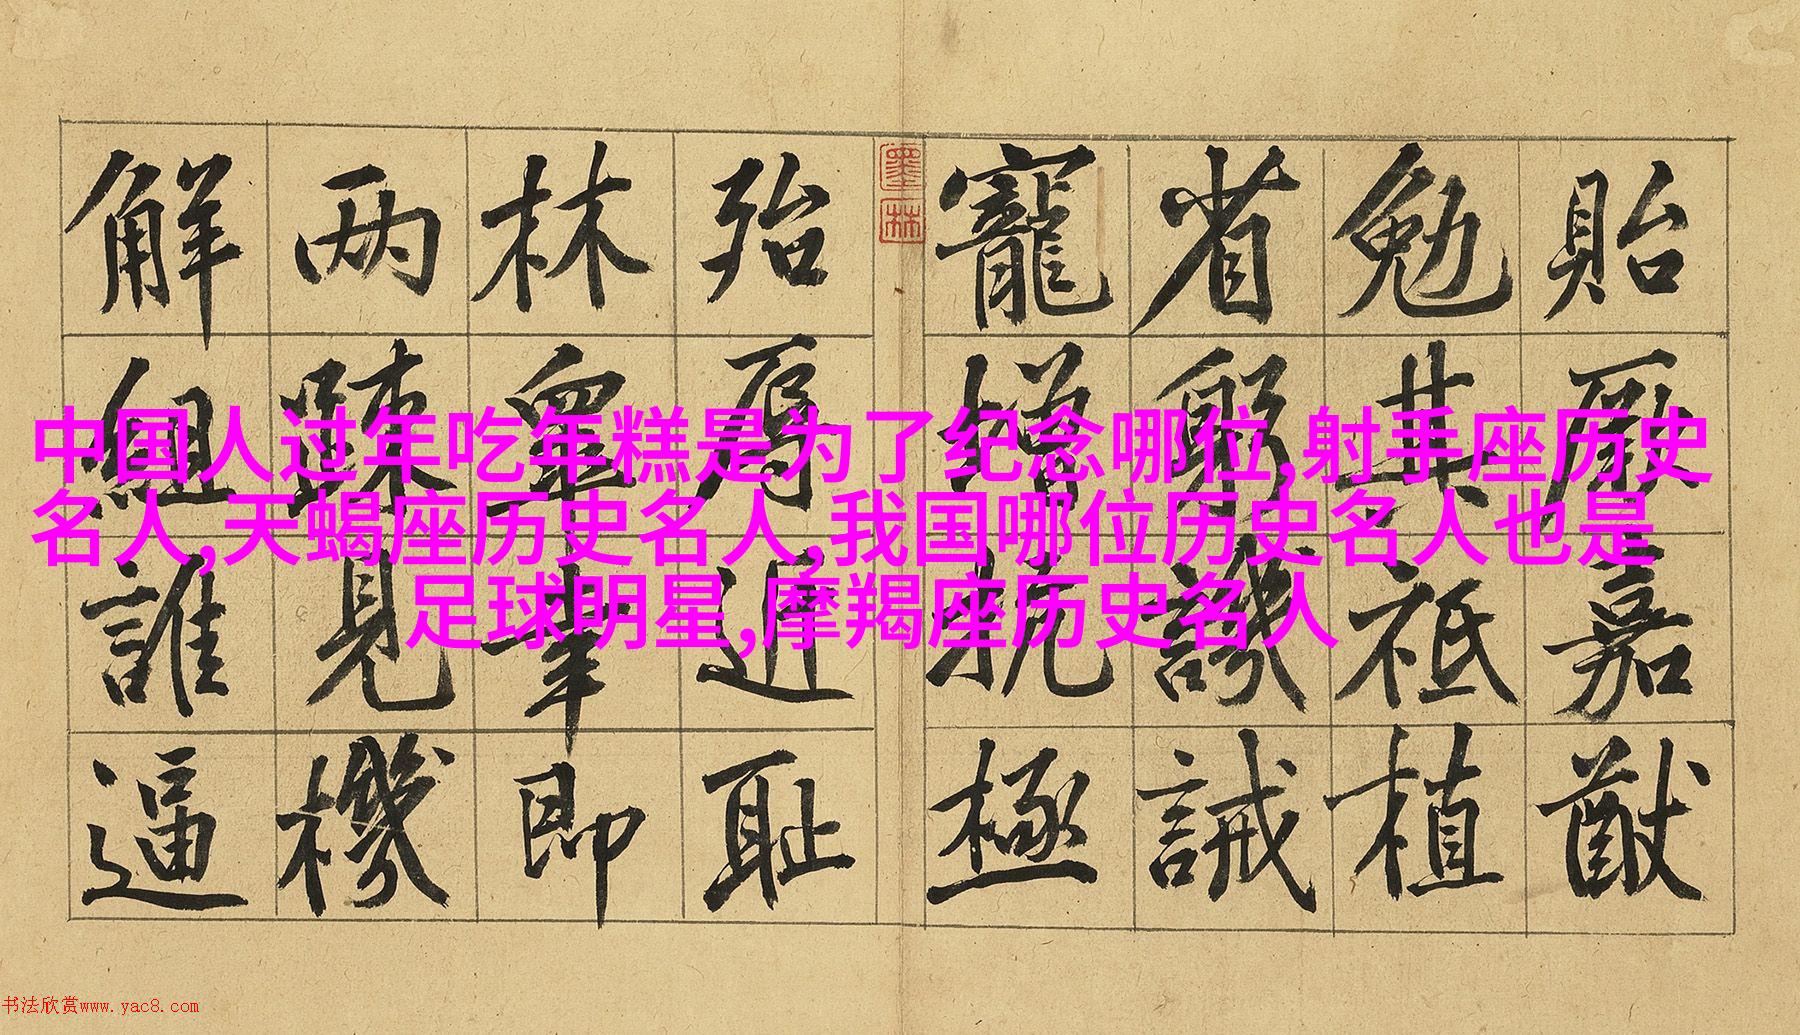 貽厥嘉猷
勉其祗植
省躬譏誡
寵增抗極
墨林
殆辱近耻
林皐幸即
两踈見機
解組誰逼
中国人过年吃年糕是为了纪念哪位,射手座历史
名人,天蝎座历史名人,我国哪位历史名人也是
足球明星,摩羯座历史名人
书法欣赏www.yac8.com